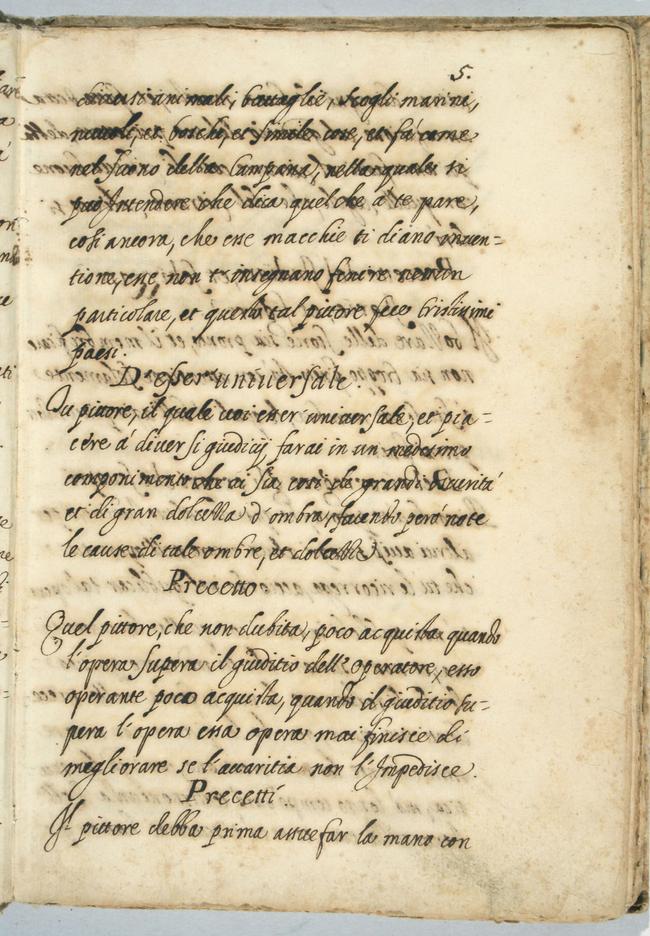 5.
diversi animali, battaglie, scogli marini,
nuvoli, et boschi, et simile cose, et fà come
nel suono della Campana, nella quale si
può Intendere che dica quel che à te pare,
cosi ancora, che esse macchie ti diano inven=
tione, esse non t'insegnano finire nessun
particolare, et questo tal pittore fece tristissimi
paesi.
D'esser universale.
Tu pittore, il quale voi esser universale, et pia=
cere à diversi giudicij farai in un medesimo
componimento che vi sia cose di grandi oscurità
et di gran dolcezza d'ombra, facendo però note
le cause di tale ombre, et dolcezze.
Precetto
Quel pittore, che non dubita, poco acquista quando
l'opera supera il giuditio dell'operatore, esso
operante poco acquista, quando il giuditio su=
pera l'opera essa opera mai finisce di
megliorare se l'avaritia non l'Inpedisce.
Precetti
Il pittore debba prima assuefar la mano con